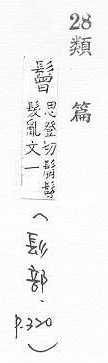 28 類篇
鬙
思登切鬅鬙
髮亂文一
(髟部. p.320)